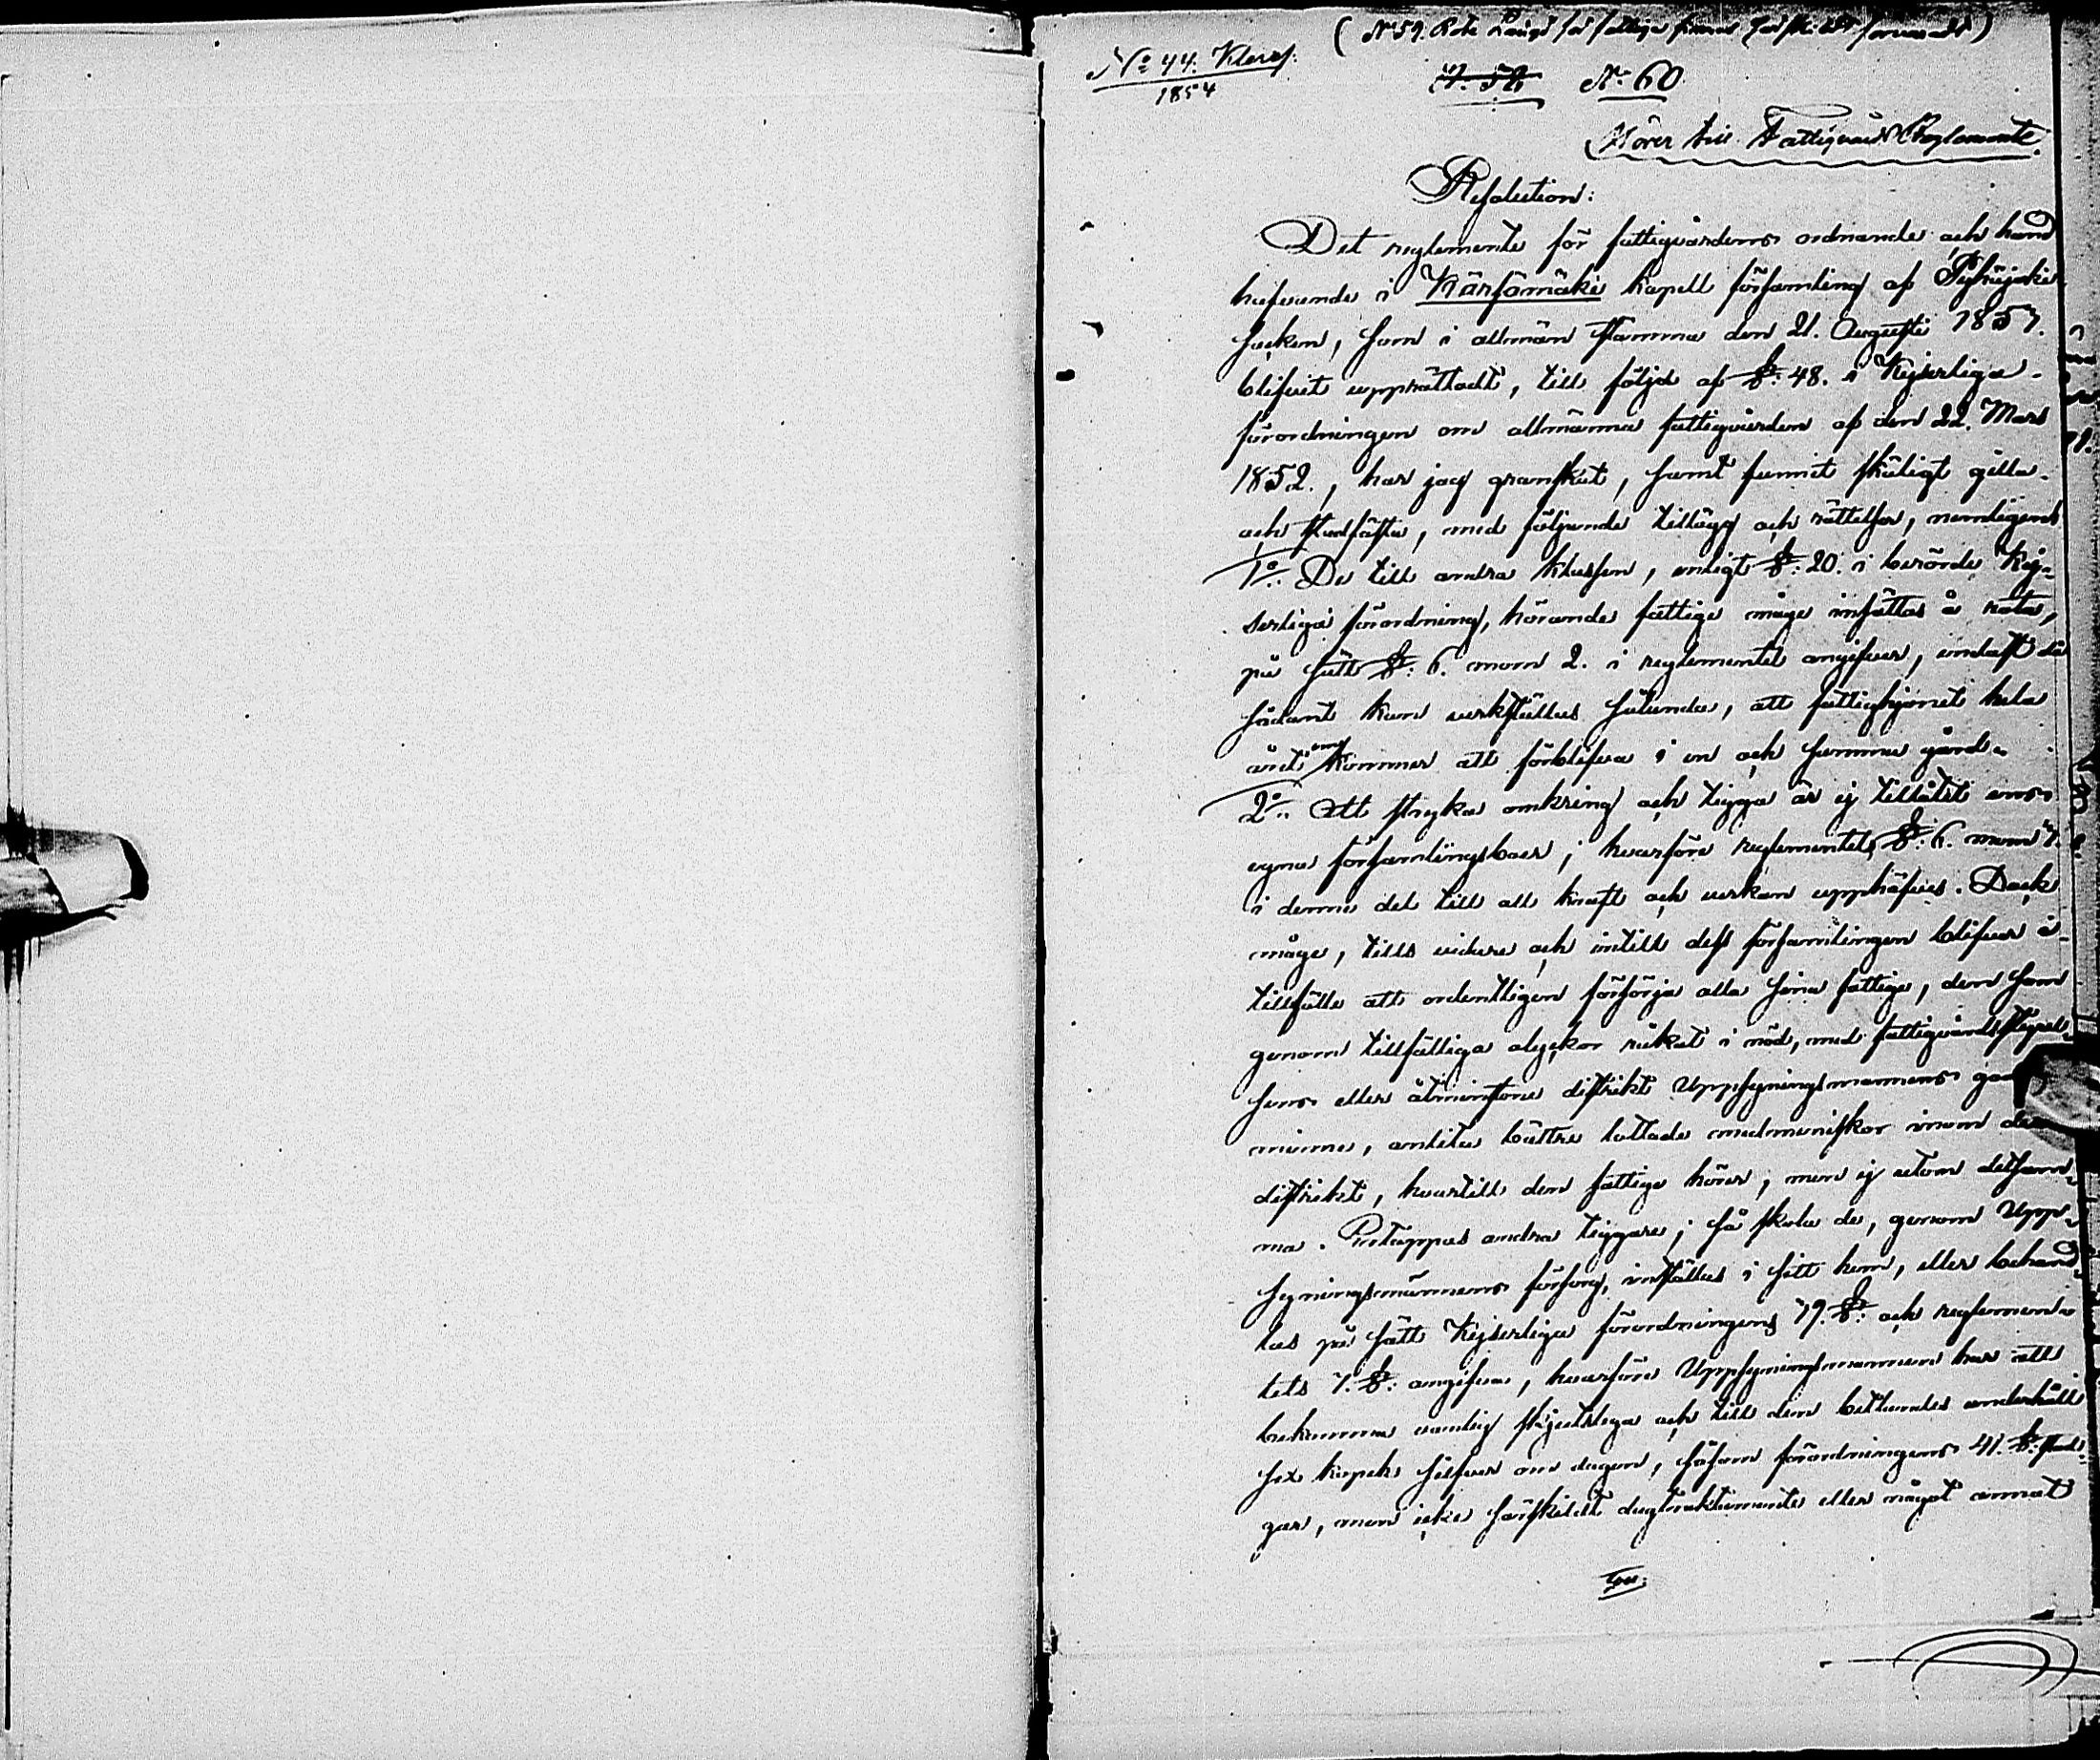 (N:o 59. Rote Längd för fattige finnes särskildt förvarad)
N:o 44. Kleresi.
1854
N:o 60
Hörer till Fattigvårds Reglemente.
Resolution:
Det reglemente för fattigvårdens ordnande och hand
hafvande i Kärsämäki Kapell församling af Pyhäjoki
socken, som i allmän stämma den 21. Augusti 1853.
blifvit upprättadt, till följd af §: 48. i Kejserliga
förordningen om allmänna fattigvården af den 22. Mars
1852., har jag granskat, samt funnit skäligt gilla
och stadfästa, med följande tillägg och rättelser, nemligen
1:o De till andra Klassen, enligt §: 20. i berörde Kej-
serliga förordning, hörande fattige måge insättas å rota,
på sätt §: 6. mom 2. i reglementet angifver, endast då
sådant kan verkställas sålunda, att fattighjonet hela
året om kommer att förblifva i en och samma gård.
2:o Att stryka omkring och tigga är ej tillåtit ens
egna församlingsboer; hvarföre reglementets §: 6. mom 7.
i denna del till all kraft och verkan upphäfves. Dock
måge, tills vidare och intill dess församlingen blifver i
tillfälle att ordentligen försörja alla sina fattige, den som
genom tillfälliga olyckor råkat i nöd, med fattigvårdsstyrel-
sens eller åtminstone distrikt Uppsyningsmannens
minne, anlita bättre lottade medmeniskor inom det
distrikt, hvartill den fattige hörer, men ej utom detsam-
ma. Ertappas andra tiggare; så skola de, genom Upp-
syningsmännens försorg, inställas i sitt hem, eller behand-
las på sätt Kejserliga förordningens 19. §: och reglemen-
tets 7. §: angifva, hvarföre Uppsyningsmannen har att
bekomma vanlig skjutslega och till den bettlandes underhåll
sex kopek silfver om dagen, såsom förordningens 41. §: stad-
gar, men icke särskildt dagtraktamente eller något annat